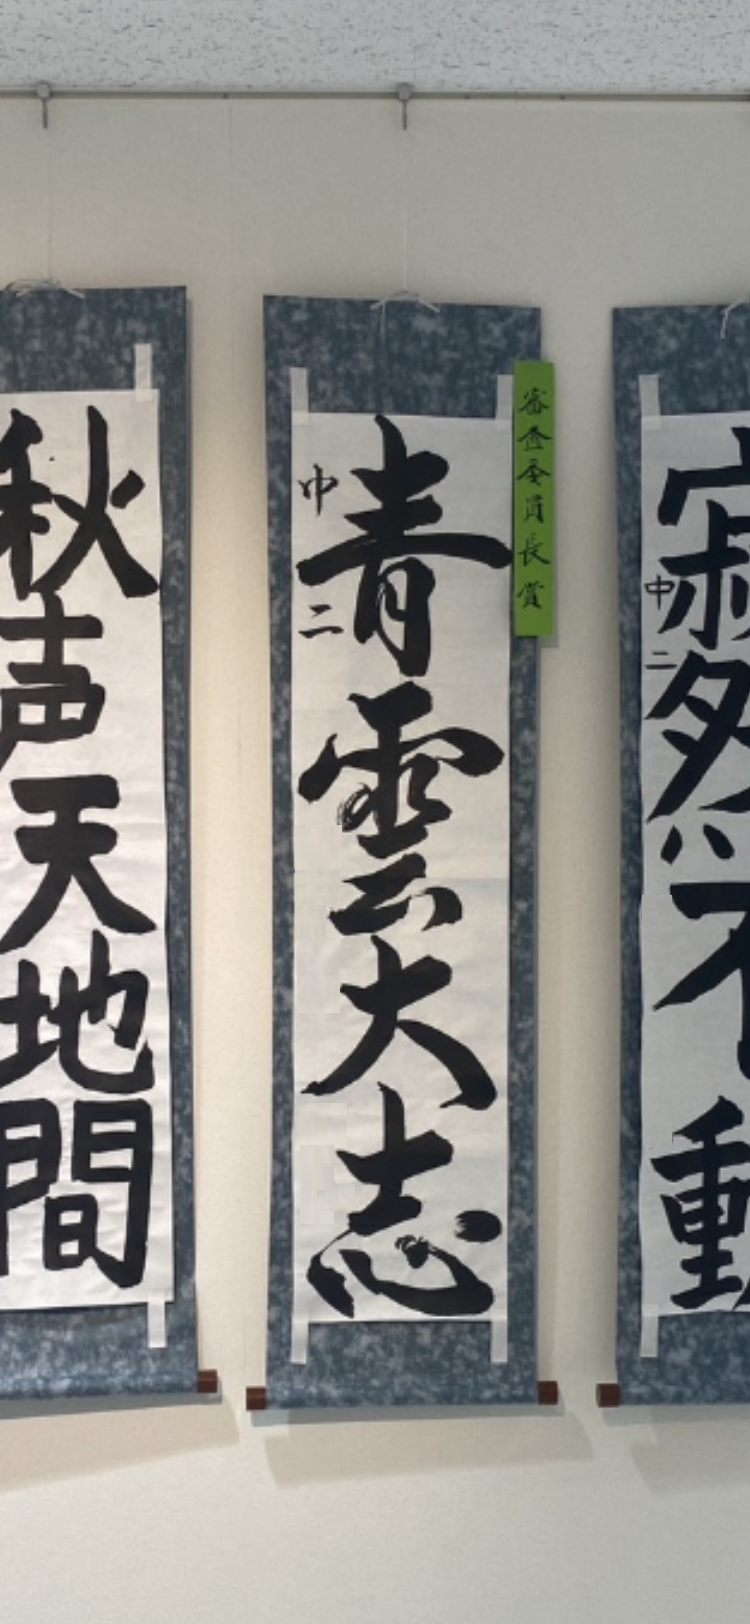 寂然不動
中二
審査委員長賞
青雲大志
中二
秋声天地間